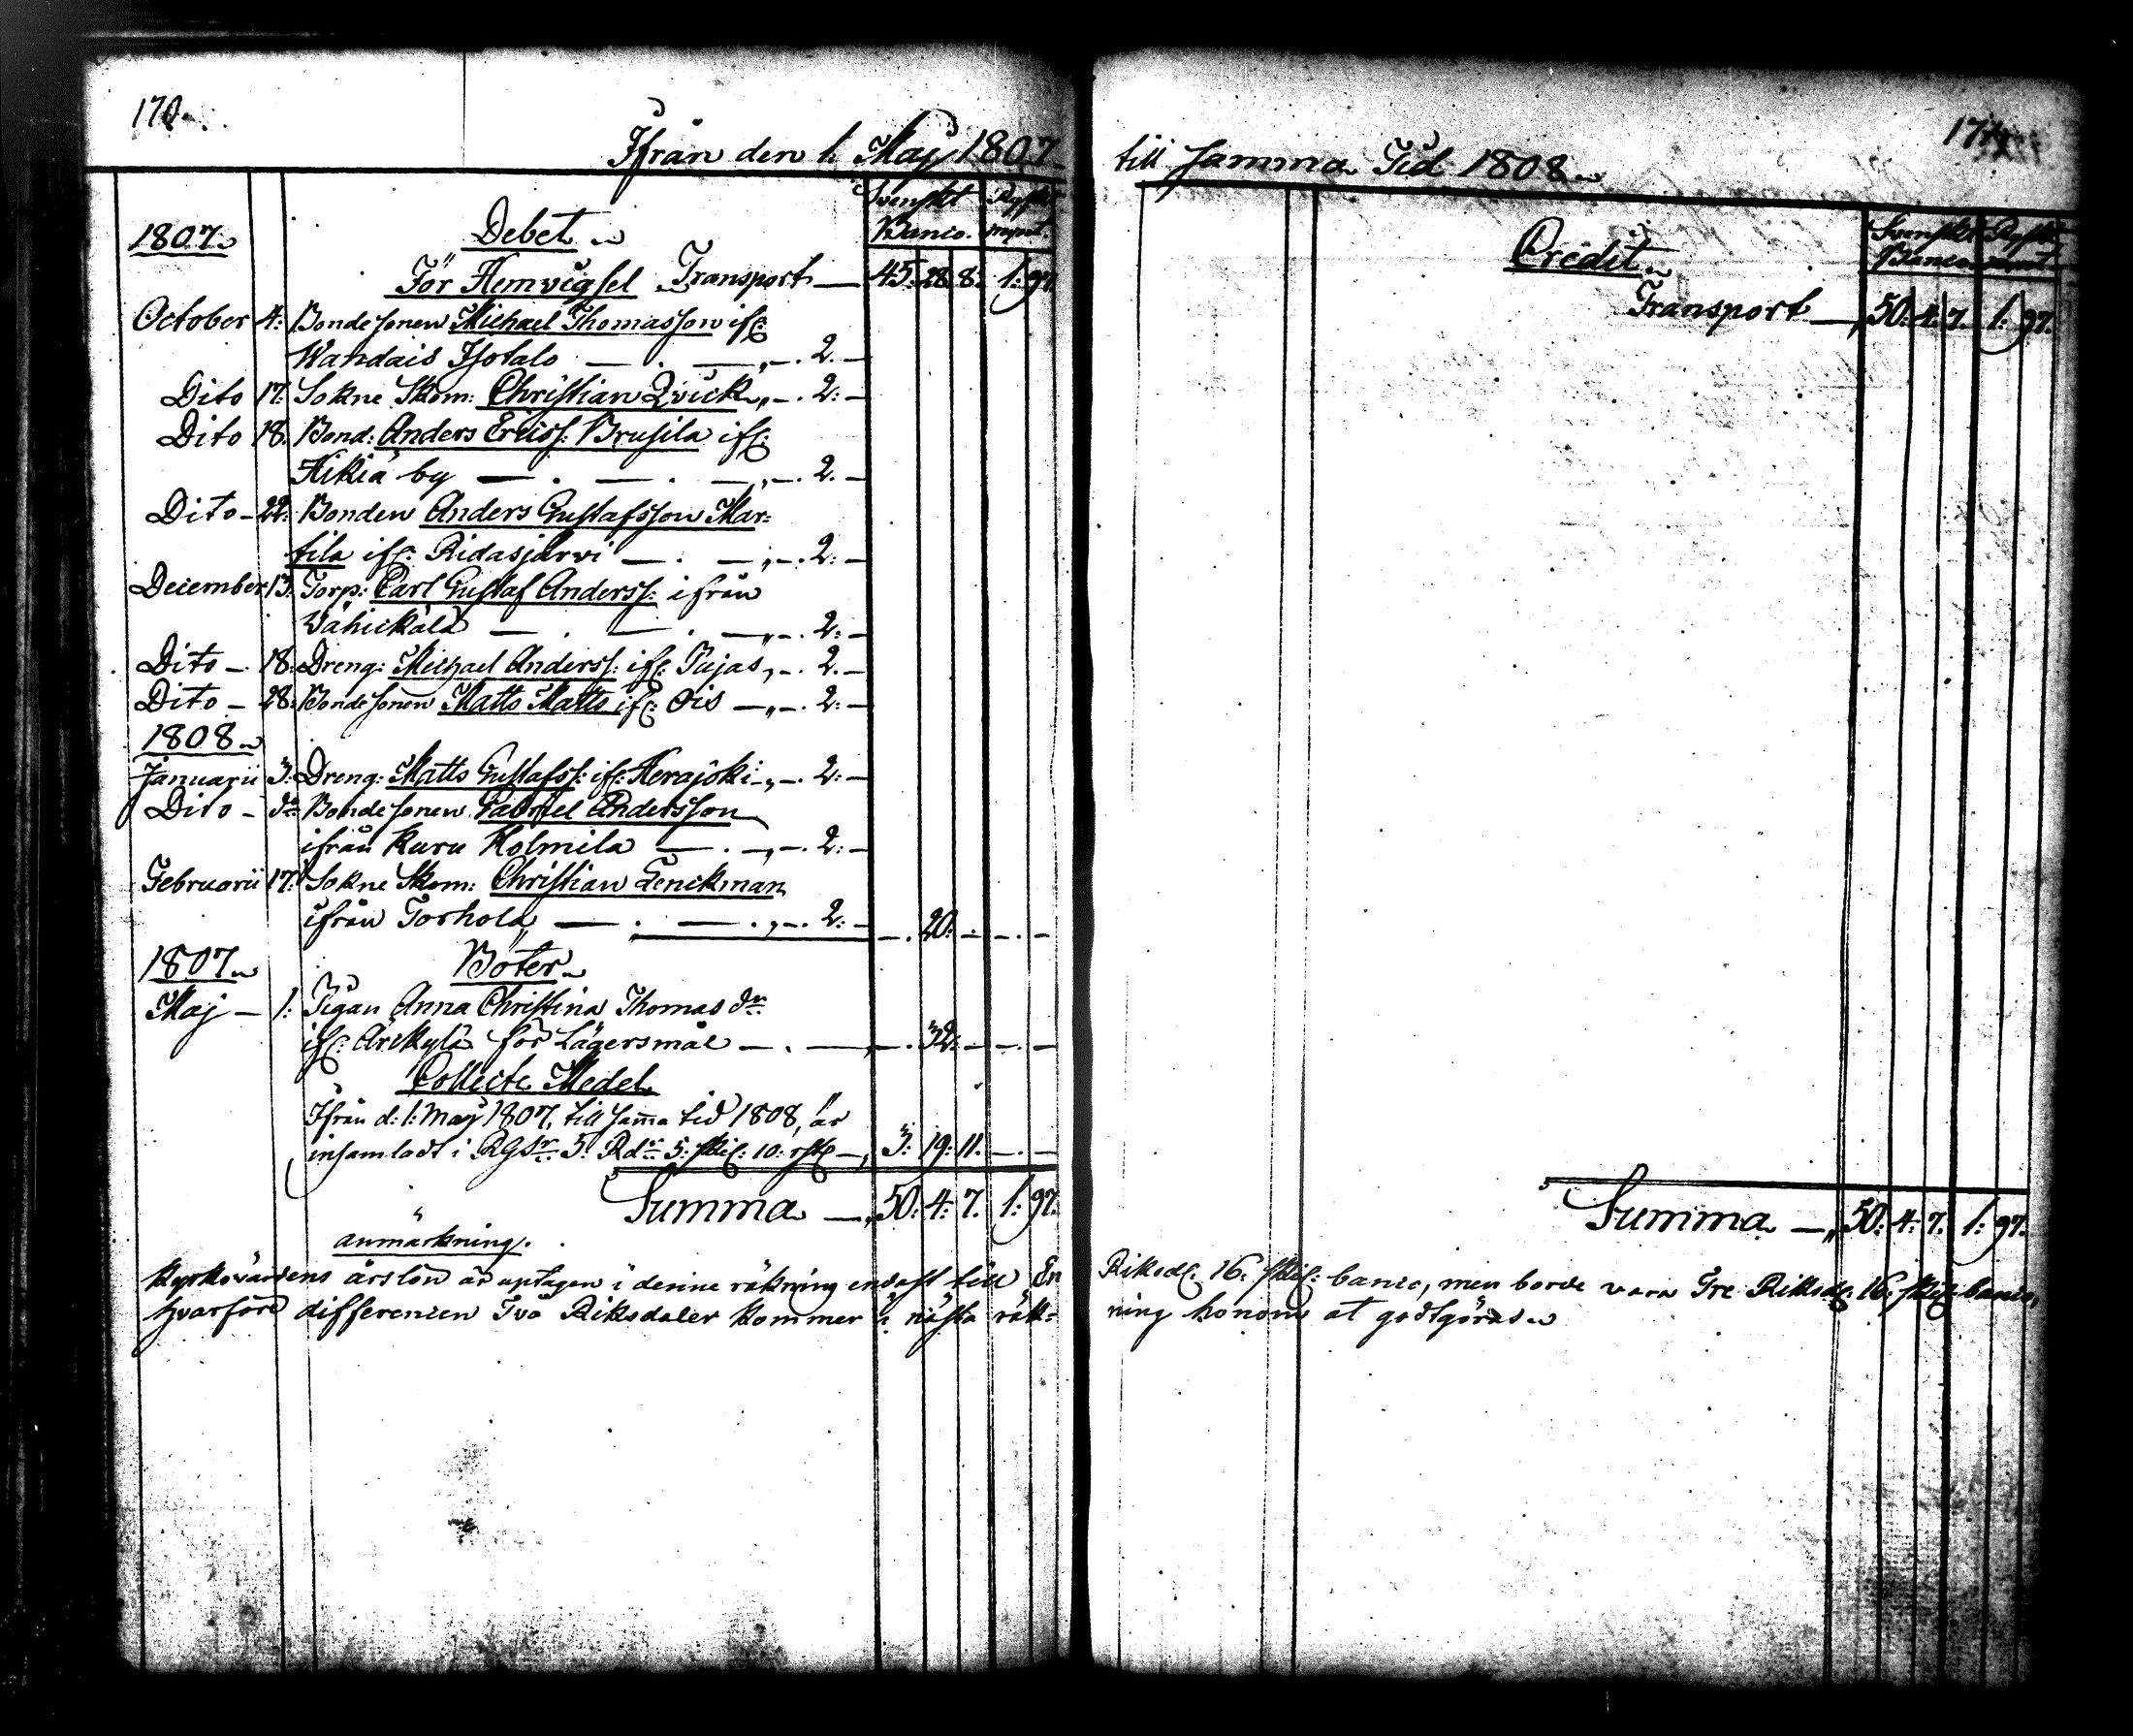 170.
Ifrån den 1. Maij 1807
Svenskt Ryskt
1807. Debet Banco. mynt.
För Hemvigsel Transport — 45: 28. 8. 1: 97.
October 4: Bondesonen Michael Thomasson ifr:
Wandais Isotalo — . — „ —. 2. —
Dito 17: Sokne Skom: Christian Qvick „ —. 2: —
Dito 18. Bond: Anders Ericss: Brusila ifr:
Hikiä by — . — . — „ —. 2. —
Dito — 22: Bonden Anders Gustafsson Mar=
tila ifr: Ridasjärvi — . — „ —. 2: —
December 13. Torp: Carl Gustaf Anderss: ifrån
Wähickälä — . — . — „ —. 2: —
Dito —. 18: Dreng: Michael Anderss: ifr: Pujas „ —. 2. —
Dito — 28: Bondesonen Matts Matts ifr: Ois — „ —. 2: —
1808
Januarii 3: Dreng: Matts Gustafss: ifr: Herajoki — „ —. 2: —
Dito — do Bondesonen Gabriel Andersson
ifrån Kuru Kolmila — . — „ —. 2: —
Februarii 17: Sokne Skom: Christian Lenckman
ifrån Torhola — . — . „ —. 2: — —. 20: — —. —
1807 Böter
Maj — 1: Pigan Anna Christina Thomas dr
ifr: Ärikylä för Lägersmål — . — —. 32: — —. —
Collecte Medel
Ifrån d: 1: Maij 1807, till samma tid 1808, är
insamladt i RGSr. 5. Rdr 5: skil: 10: rst — 3: 19: 11. —. —
Summa — „ 50: 4: 7. 1: 97.
anmärkning.
Kyrkovärdens årslön är uptagen i denne räkning endast till En
hvarföre differencen Två Riksdaler kommer i nästa räk=
till samma Tid 1808
Credit Svenskt Ryskt
Banco mynt.
Transport — „ 50: 4: 7. 1: 97.
Summa — „ 50: 4: 7. 1: 97.
Riksd: 16: skil: banco, men borde vara Tre Riksd: 16: skil: banco,
ning honom at godtgöras